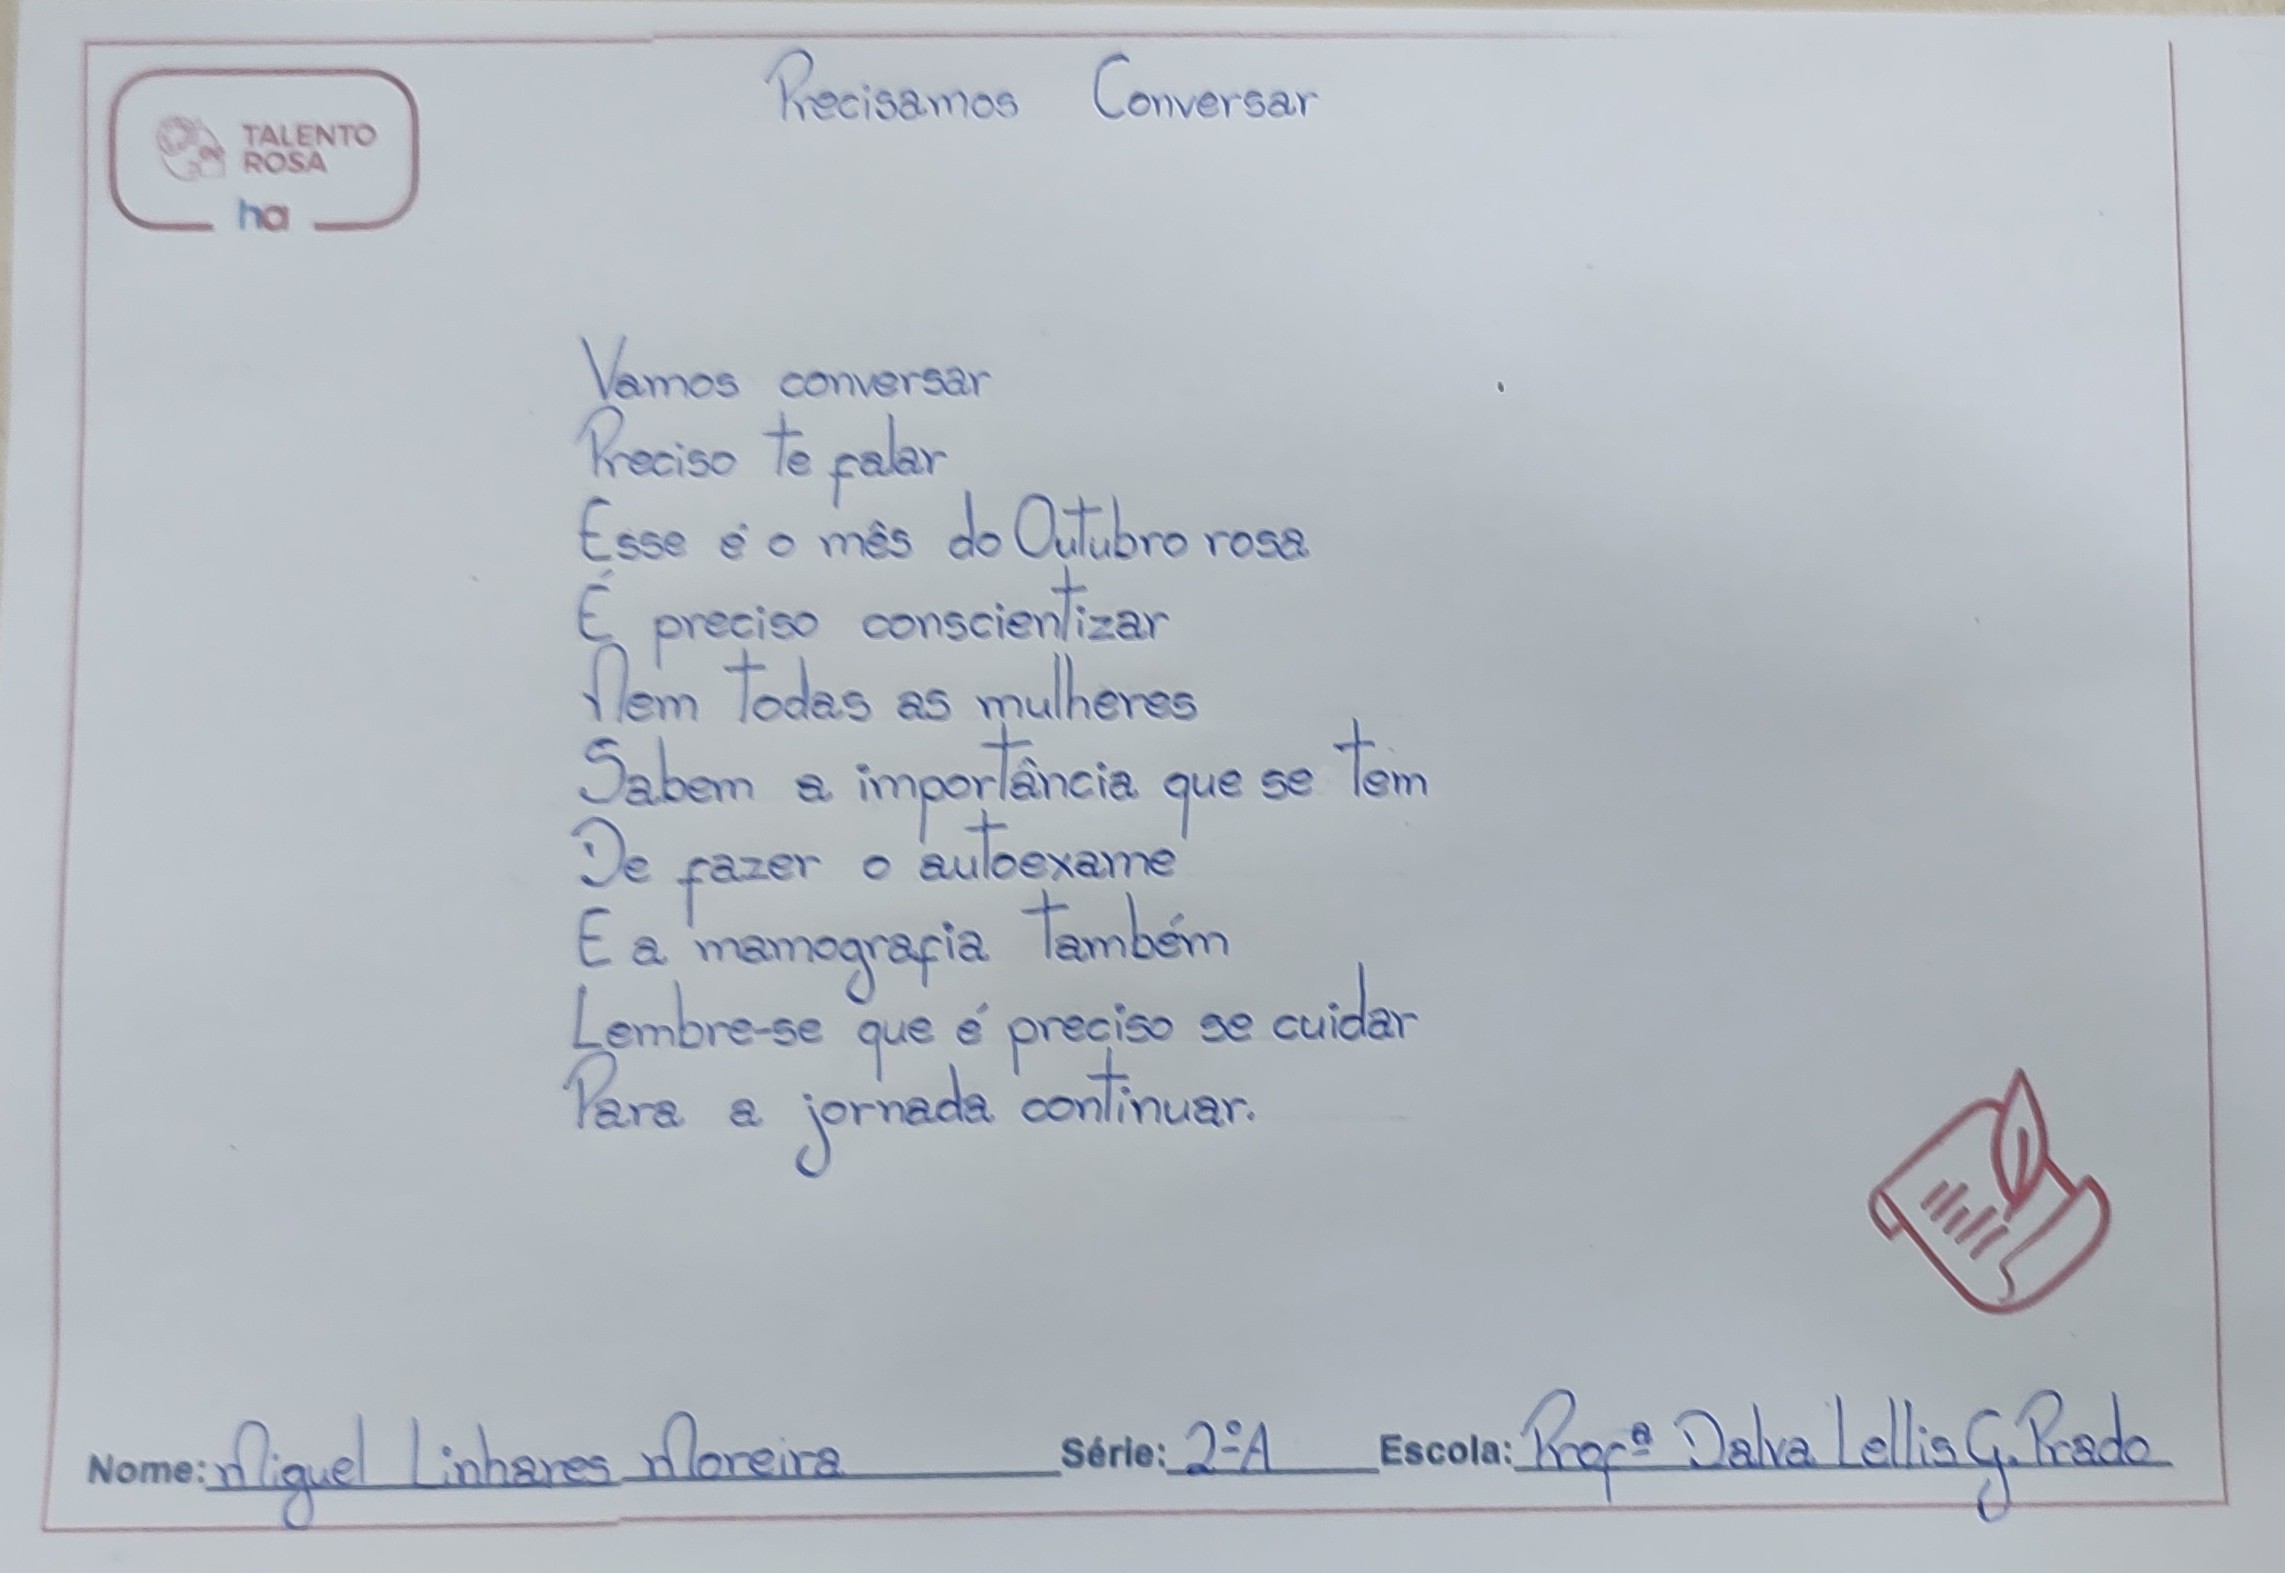 Precisamos Conversar
TALENTO
ROSA
ha
Vamos conversar
Preciso te falar
Esse é o mês do Outubro rosa
É preciso conscientizar
Nem todas as mulheres
Sabem a importância que se tem
De fazer o autoexame
E a mamografia também
Lembre-se que é preciso se cuidar
Para a jornada continuar.
Nome: Miguel Linhares Moreira Série: 2ºA Escola: Profª Dalva Lellis G. Prado